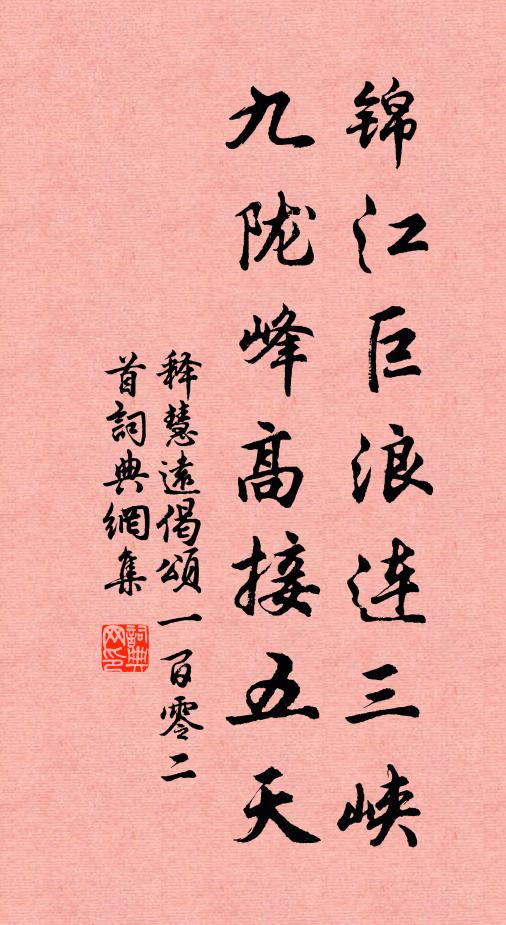 锦江巨浪连三峡
九陇峰高接五天
释慧远偈颂一百零二
首词典网集
词典网印